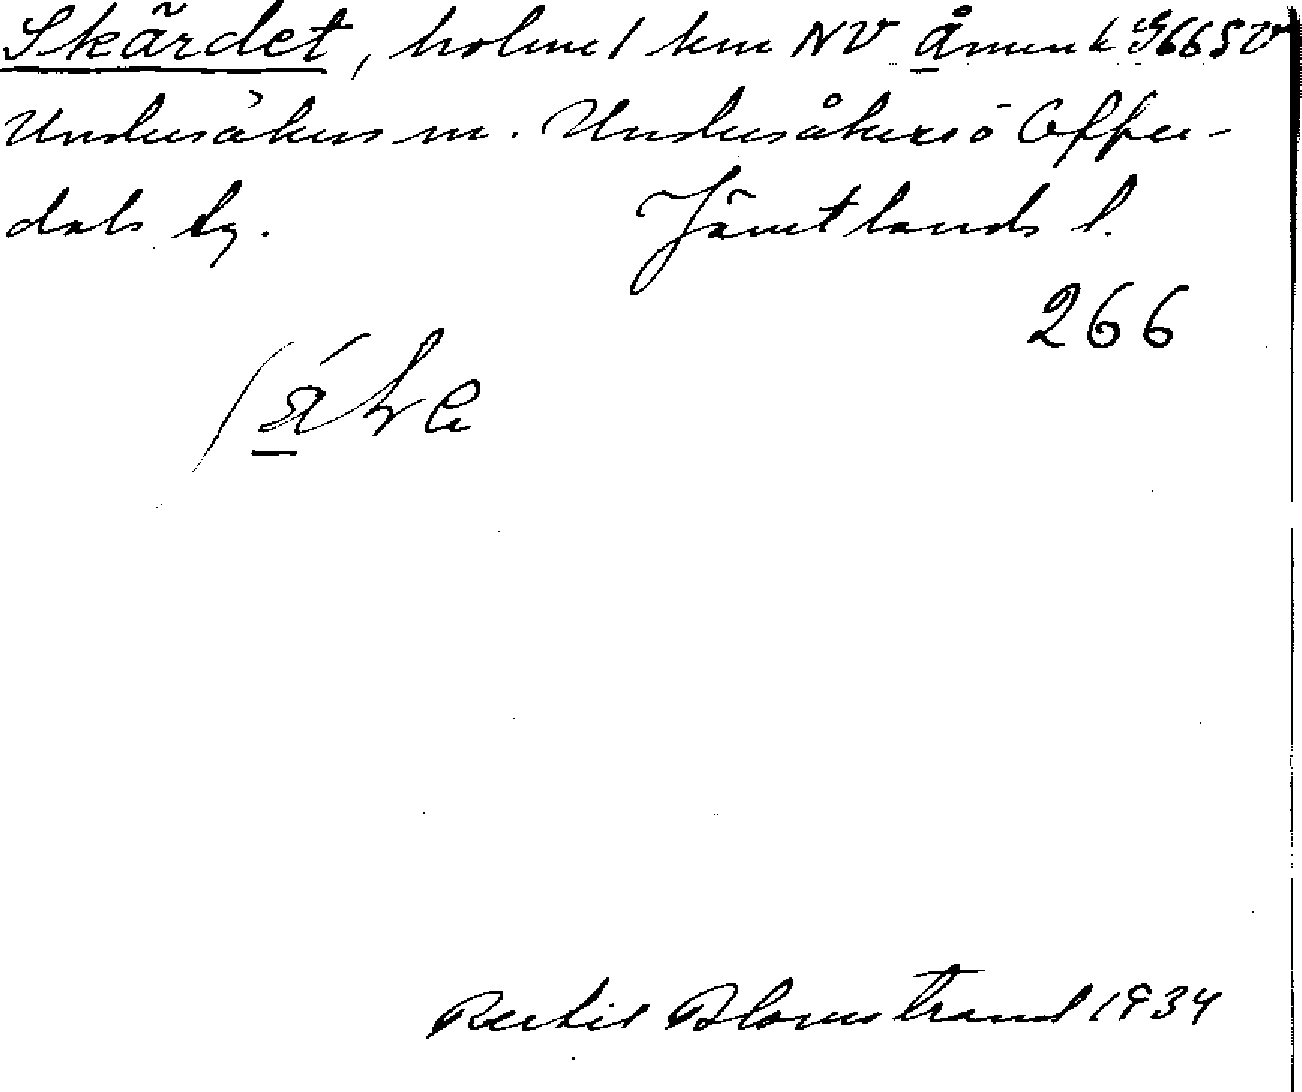 Skärdet, holme 1 km NV Ånn k G66SV
Undersåkers sn. Undersåkers o Offer-
dals tg. Jämtlands l.
266
Bertil Blomstrand 1934